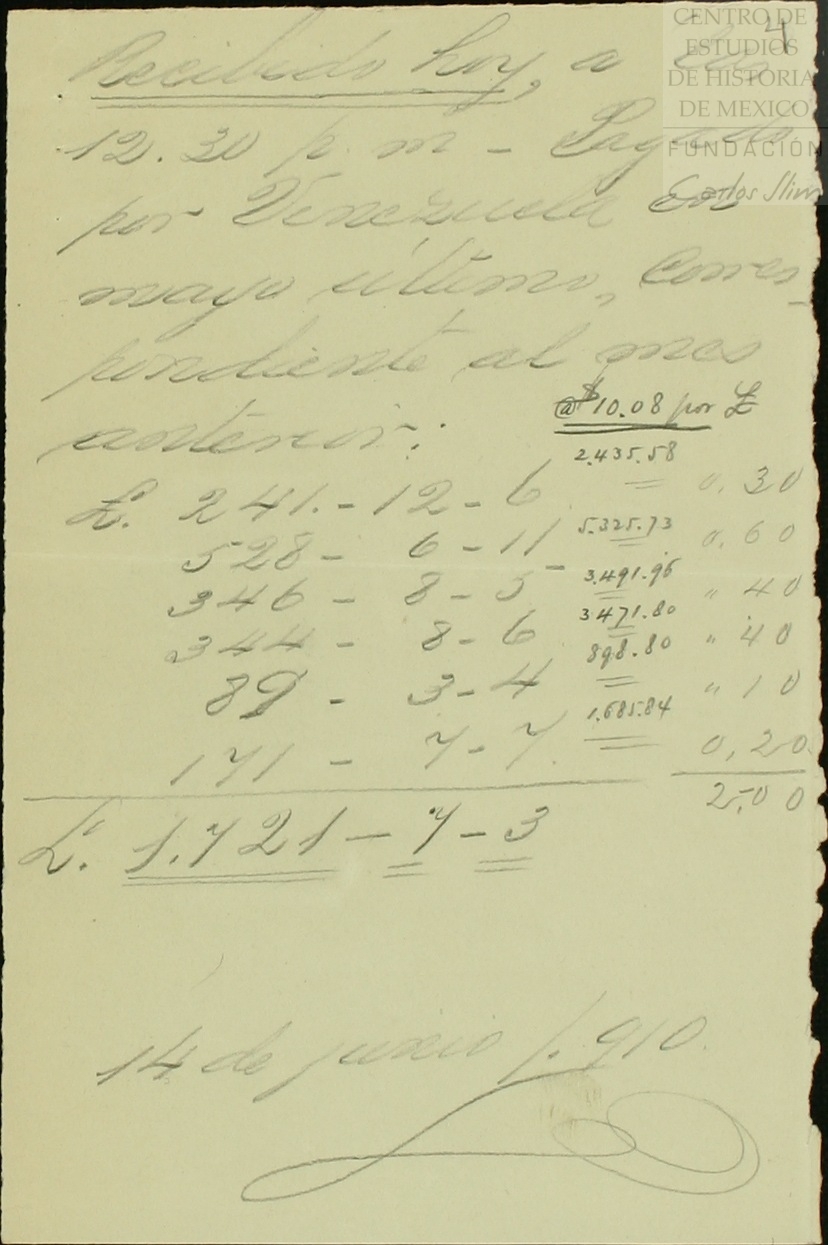 4
CENTRO DE
ESTUDIOS
DE HISTORIA
DE MEXICO
FUNDACIÓN
Carlos Slim
Recibido hoy, a las
12.30 p. m - Pagado
por Venezuela en
mayo último, corres-
pondiente al mes
anterior:
@ $10.08 por £
£. 241.-12-6 2.435.58 0.30
528- 6-11 5.325.73 0.60
346- 8-5 3.491.96 " 40
344- 8-6 3471.80 " 40
89- 3-4 898.80 " 10
171- 7-7. 1.685.84 0,20
2.00
£. 1.721-7-3
14 de junio 1.910.